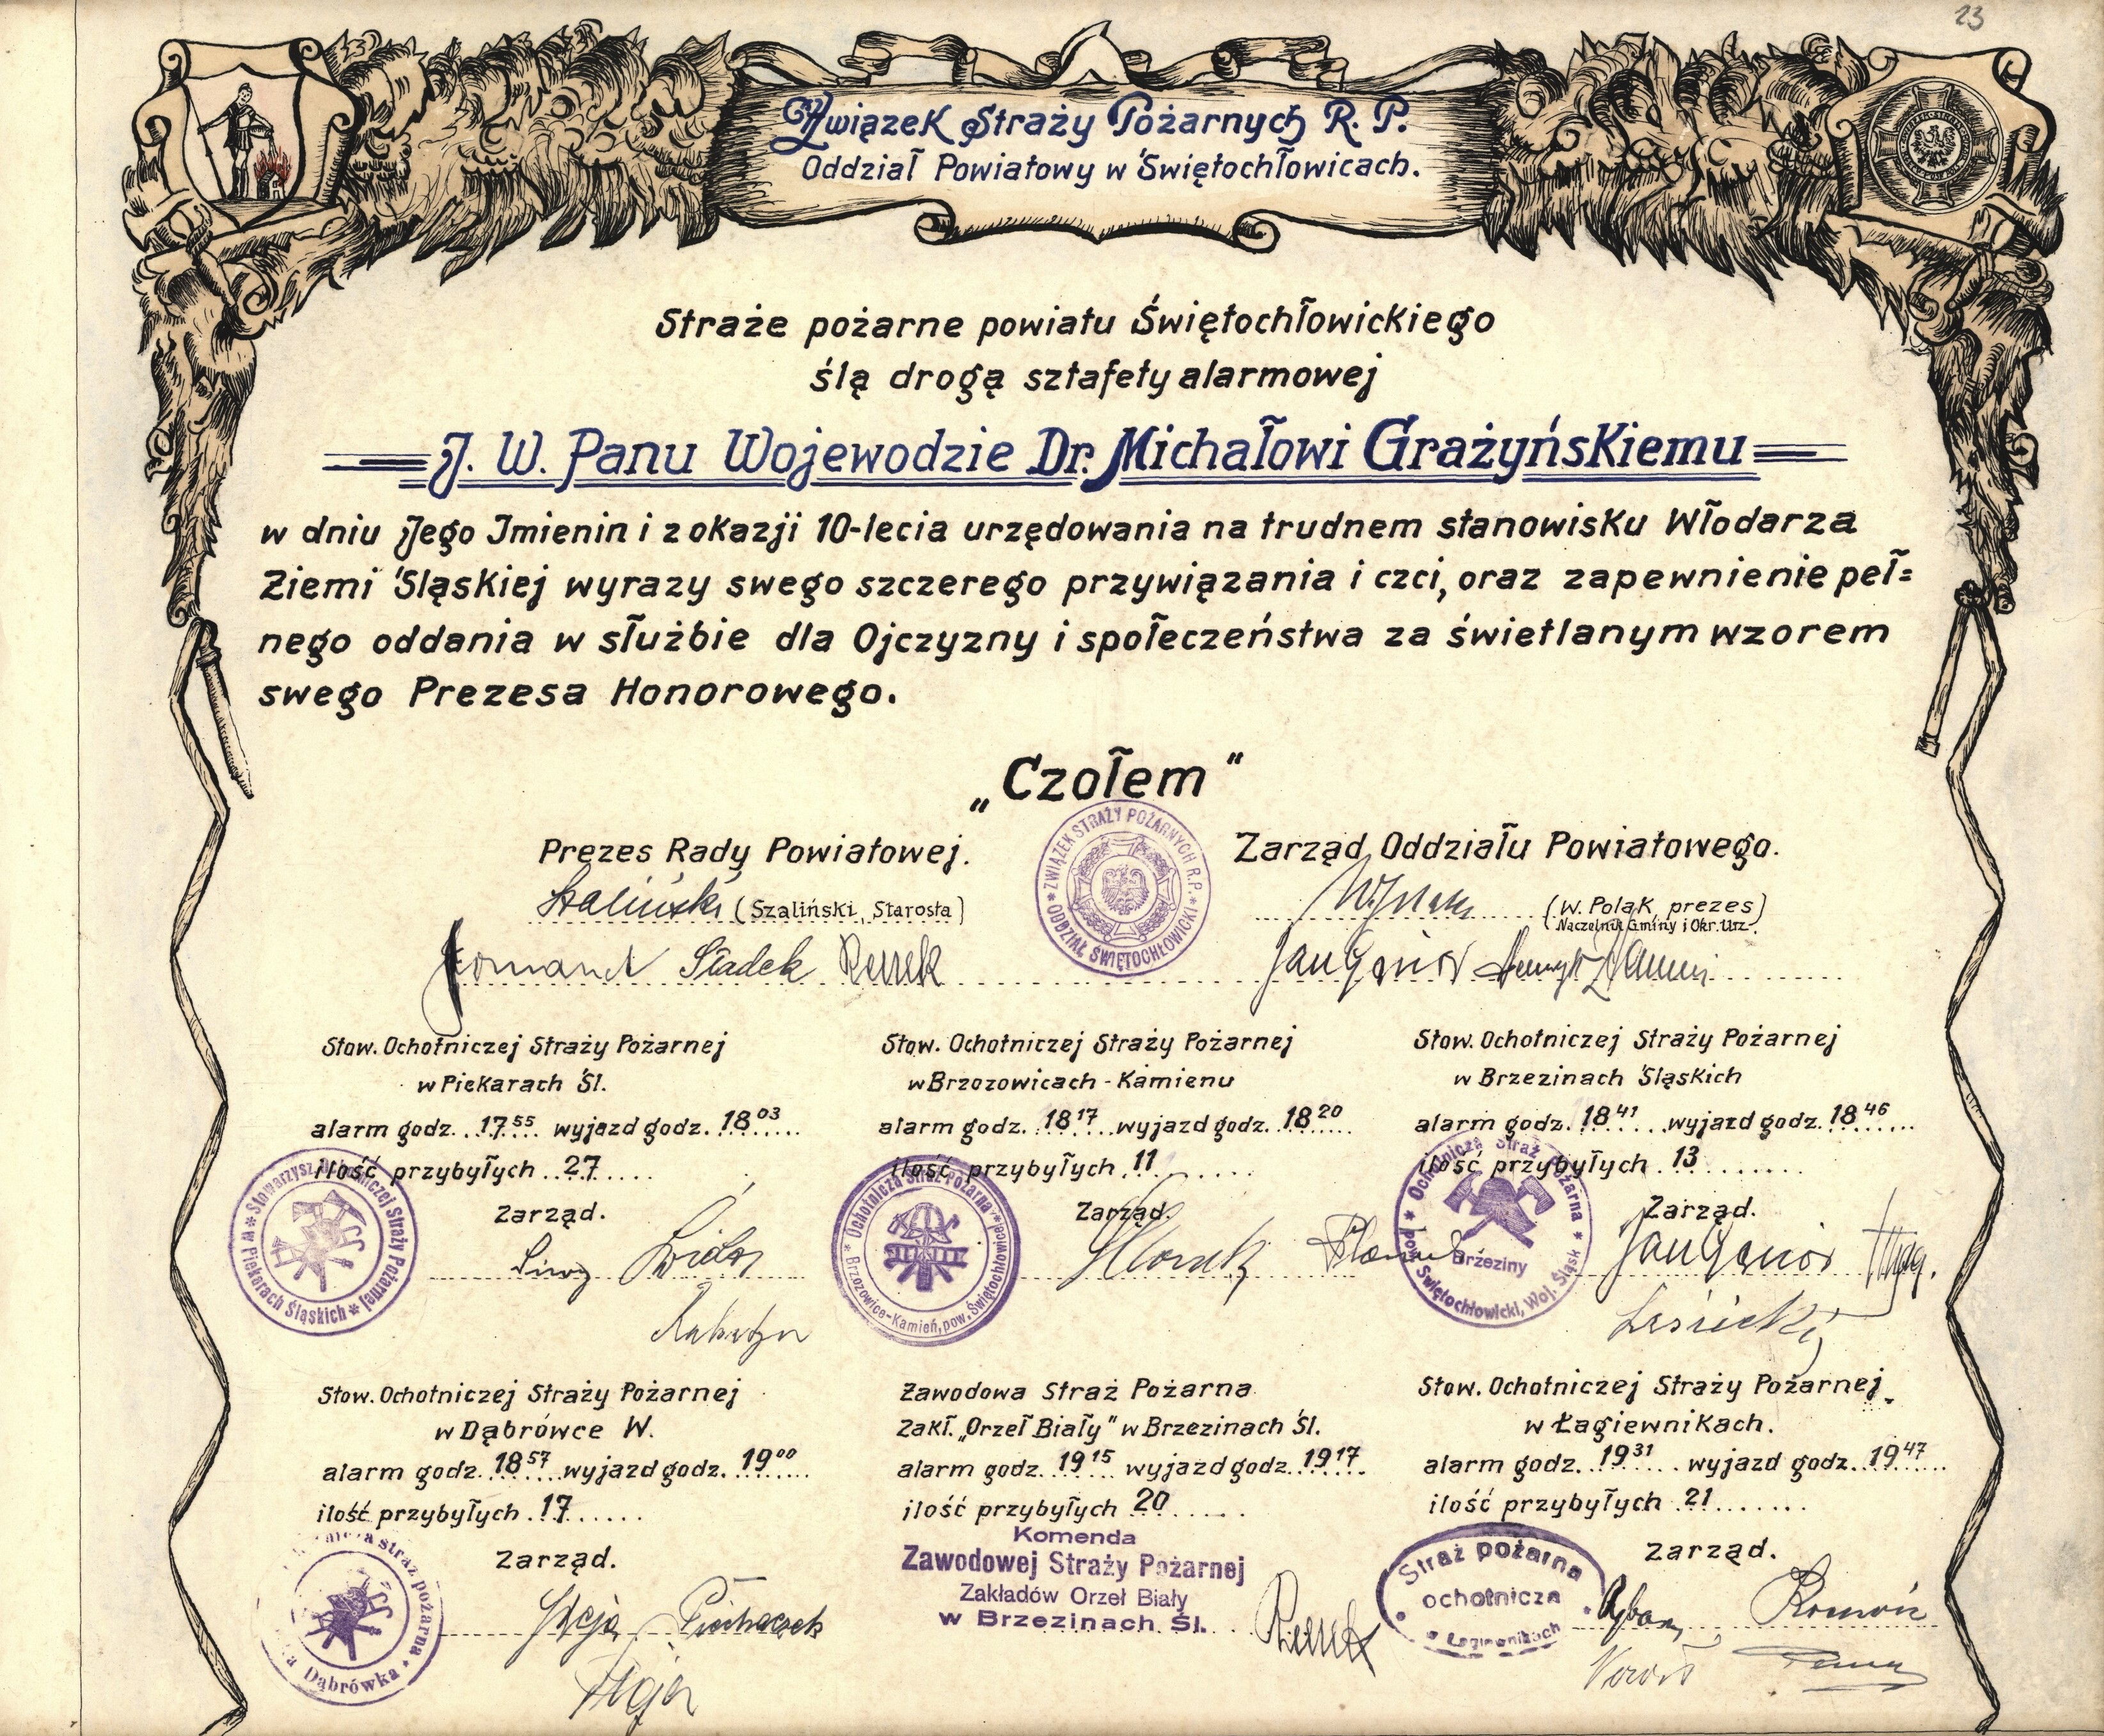 23
Związek Straży Pożarnych R. P.
Oddział Powiatowy w Świętochłowicach.
Straże pożarne powiatu Świętochłowickiego
ślą drogą sztafety alarmowej
J. W. Panu Wojewodzie Dr. Michałowi Grażyńskiemu
w dniu Jego Imienin i z okazji 10-lecia urzędowania na trudnem stanowisku Włodarza
Ziemi Śląskiej wyrazy swego szczerego przywiązania i czci, oraz zapewnienie peł=
nego oddania w służbie dla Ojczyzny i społeczeństwa za świetlanym wzorem
swego Prezesa Honorowego.
„Czołem"
Prezes Rady Powiatowej.
Zarząd Oddziału Powiatowego.
* ZWIĄZEK STRAŻY POŻARNYCH R.P. * ODDZIAŁ ŚWIĘTOCHŁOWICKI
Szaliński (Szaliński, Starosta)
(W. Polak, prezes)
Naczelnik Gminy i Okr. Urz.
Śladek
Stow. Ochotniczej Straży Pożarnej
w Piekarach Śl.
alarm godz. 17 55 wyjazd godz. 18 03
ilość przybyłych 27
Zarząd.
* Stowarzysz. Ochotniczej Straży Pożarnej * w Piekarach Śląskich
Stow. Ochotniczej Straży Pożarnej
w Brzozowicach - Kamieniu
alarm godz. 18 17 wyjazd godz. 18 20
ilość przybyłych 11
Zarząd.
* Ochotnicza Straż Pożarna * Brzozowice-Kamień, pow. Świętochłowice
Stow. Ochotniczej Straży Pożarnej
w Brzezinach Śląskich
alarm godz. 18 41 wyjazd godz. 18 46
ilość przybyłych 13
Zarząd.
* Ochotnicza Straż Pożarna *
Brzeziny
pow. Świętochłowicki, Woj. Śląsk
Stow. Ochotniczej Straży Pożarnej
w Dąbrówce W.
alarm godz. 18 57 wyjazd godz. 19 00
ilość przybyłych 17
Zarząd.
straż pożarna * Dąbrówka
Zawodowa Straż Pożarna
Zakł. „Orzeł Biały" w Brzezinach Śl.
alarm godz. 19 15 wyjazd godz. 19 17
ilość przybyłych 20
Komenda
Zawodowej Straży Pożarnej
Zakładów Orzeł Biały
w Brzezinach Śl.
Stow. Ochotniczej Straży Pożarnej
w Łagiewnikach.
alarm godz. 19 31 wyjazd godz. 19 47
ilość przybyłych 21
Zarząd.
Straż pożarna
ochotnicza
w Łagiewnikach